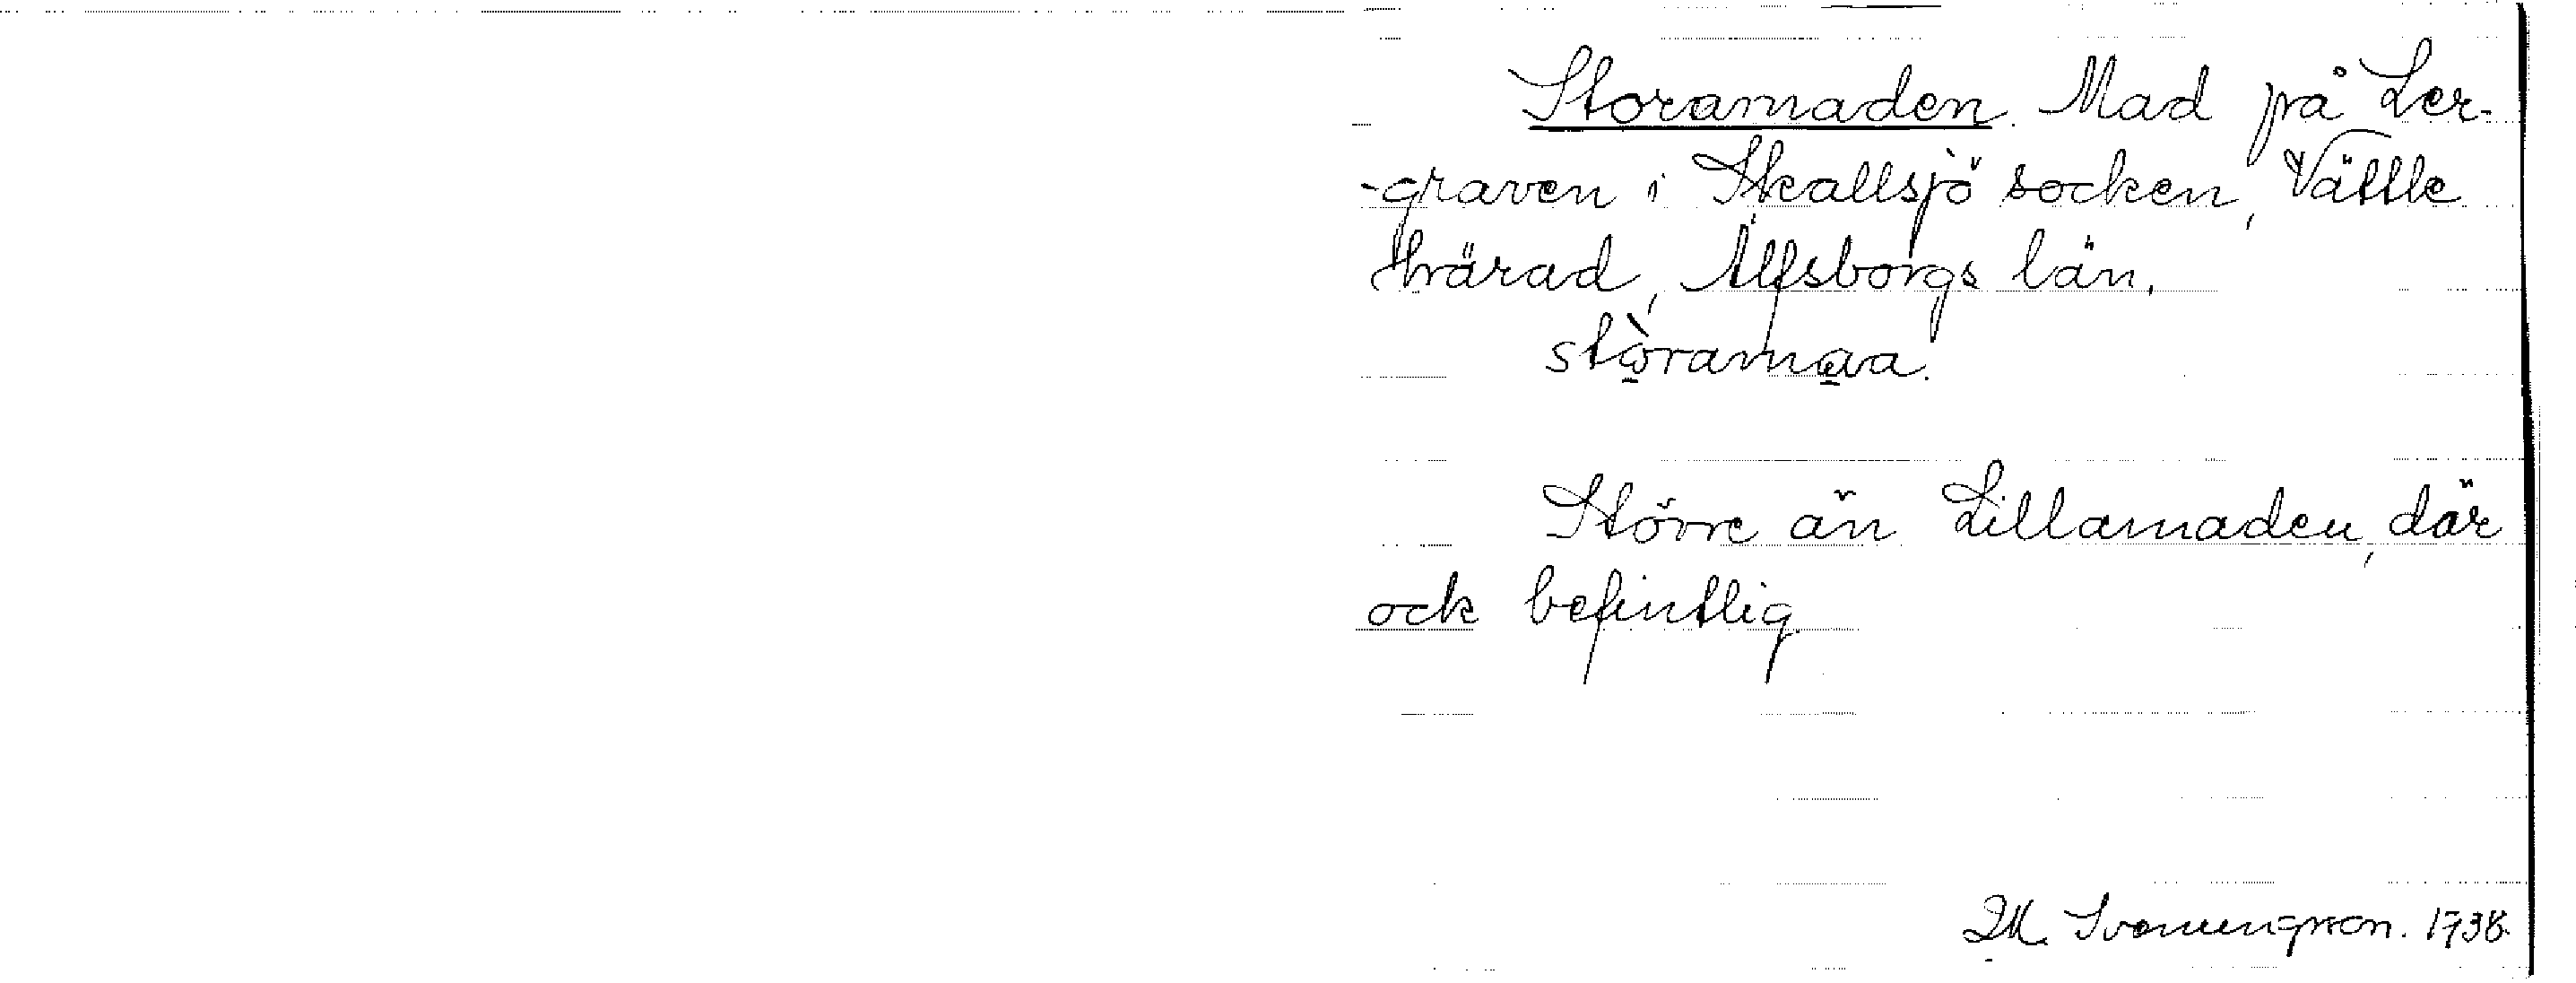 Storamaden. Mad på Ler-
-graven i Skallsjö socken, Vättle
härad, Älfsborgs län.
stòramaa.
Större än Lillamaden, där
ock befintlig
M. Svenungsson. 1938.